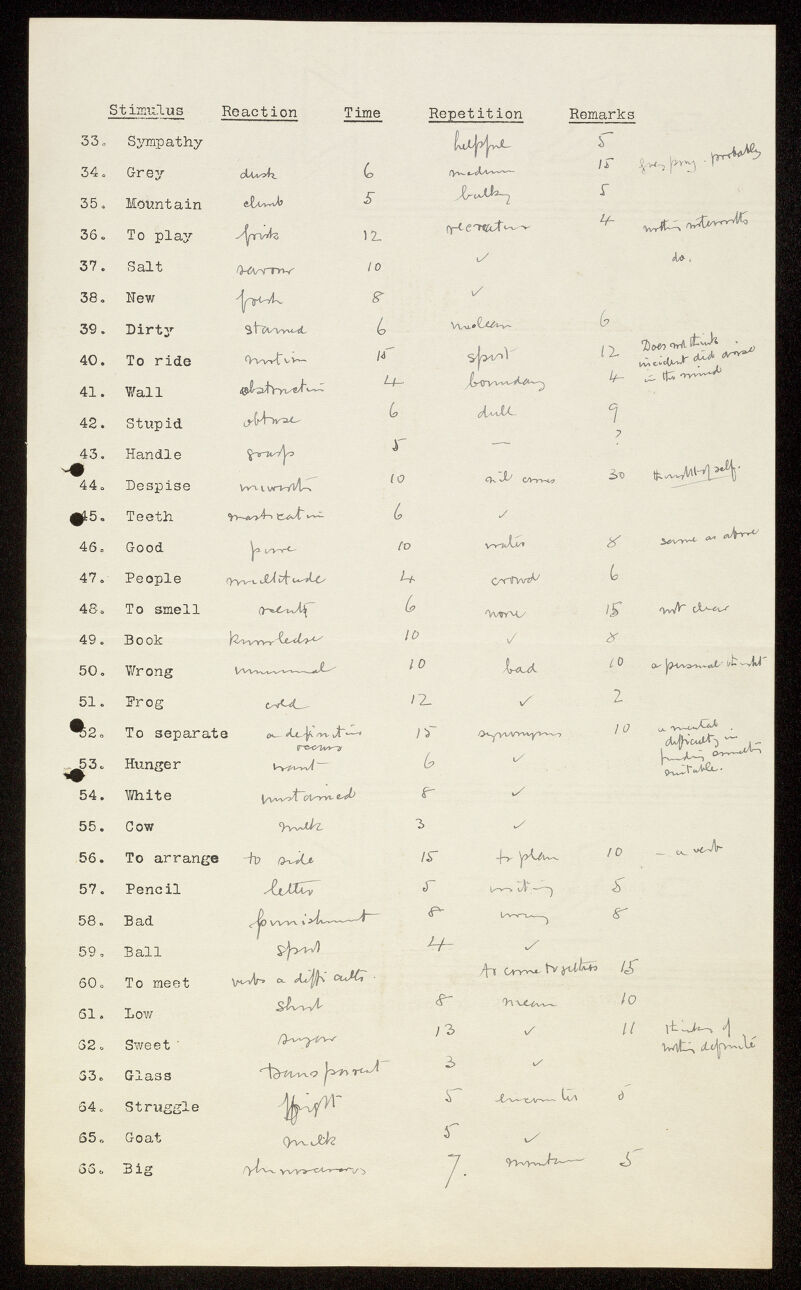 Stimulus Reaction Time Repetition Remarks
33. Sympathy helpful 5
34. Grey dusk 6 medium 15 probably
35. Mountain climb 5 bulky 5
36. To play frisk 12 recreation 4 nothing noteworthy
37. Salt savour 10 ✓ do.
38. New fresh 8 ✓
39. Dirty stained 6 unclean 6
40. To ride motion 15 sport 12 Does not think incident did arise in the mind
41. Wall obstruction 4 boundary 4
42. Stupid obtuse 6 dull 9
43. Handle grasp 5 — ?
44. Despise unworth 10 nil comes 30 thought of self.
45. Teeth mastication 6 ✓
46. Good pure 10 8 same as above
47. People multitude 4 crowd 6
48. To smell scent 6 none 15 not clear
49. Book knowledge 10 ✓ 8
50. Wrong 10 bad 10 a personal thought
51. Frog cold 12 ✓ 2
52. To separate a definition occurs 15 synonyms 10 a mental difficulty in finding suitable.
53. Hunger want 6 ✓
54. White unstained 8 ✓
55. Cow milk 3 ✓
56. To arrange to side 15 to plan 10 — a verb
57. Pencil letter 5 writing 5
58. Bad punishment 8 wrong 8
59. Ball sport 4 ✓
60. To meet verbs a difficulty. to come together 15
61. Low short 8 mean 10
62. Sweet sugar 13 ✓ 11 thinks of nothing definite
63. Glass transparent 3 ✓
64. Struggle fight 5 encounter 5
65. Goat milk 5 ✓
66. Big 7. mountain 5